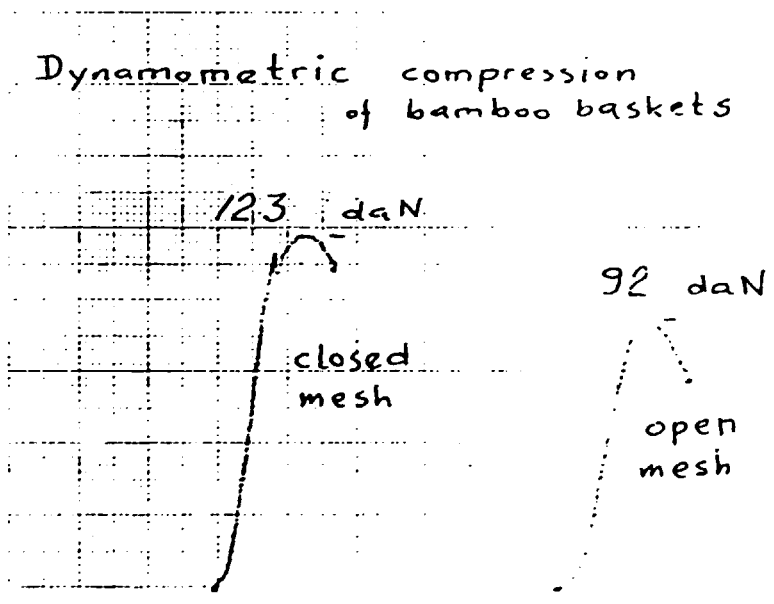 Dynamometric compression
of bamboo baskets
123 daN
92 daN
closed
mesh
open
mesh